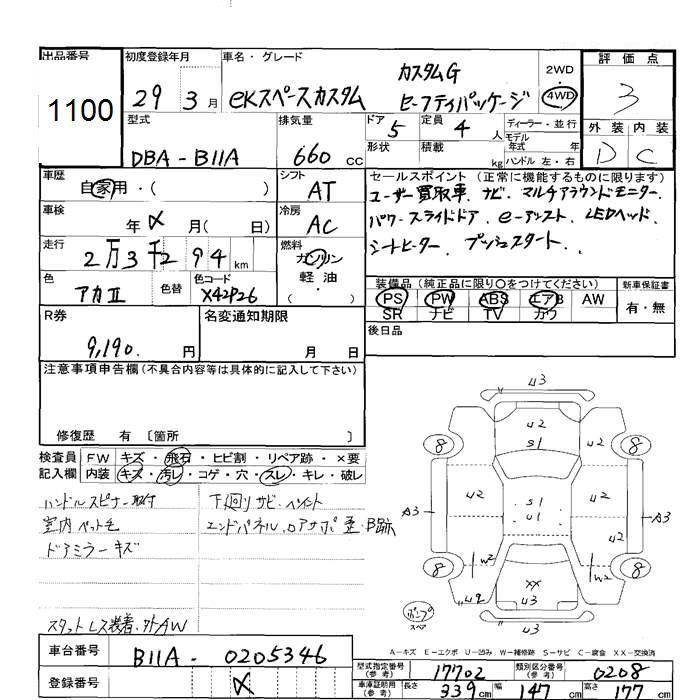 出品番号 初度登録年月 車名・グレード 評価点
1100 29 3月 eKスペースカスタム カスタムG セーフティパッケージ 2WD 4WD 3
型式 排気量 ドア 5 定員 4人 ディーラー・並行 外装 内装
DBA-B11A 660cc 形状 積載 kg モデル年式 年 ハンドル 左・右 D C
車歴 自家用・( ) シフト AT セールスポイント (正常に機能するものに限ります)
ユーザー買取車、ナビ、マルチアラウンドモニター、
車検 年 月( 日) 冷房 AC パワースライドドア、e-アシスト、LEDヘッド、
走行 2万3千294km 燃料 ガソリン・軽油 ( ) シートヒーター、プッシュスタート、
色 アカⅡ 色替 色コード X42P26 装備品(純正品に限り○をつけてください) 新車保証書
PS PW ABS エアB AW 有・無
SR ナビ TV カワ
R券 名変通知期限 後日品
9,190.円 月 日
注意事項申告欄(不具合内容等は具体的に記入して下さい)
修復歴 有 〔箇所 〕
検査員 FW キズ・飛石・ヒビ割・リペア跡・×要
記入欄 内装 キズ・汚レ・コゲ・穴・スレ・キレ・破レ
ハンドルスピナー取付 下回リサビ・ペイント
室内ペット毛 エンドパネル、ロアサポ 歪・B跡
ドアミラーキズ
スタットレス装着、外AW
U3
8 U2 S1 8
A3 U2 S1 U1 U2 U2 A3
8 W2 W2 8
U2 XX U3
U3
パンプ スペア
A-キズ E-エクボ U-凹み W-補修跡 S-サビ C-腐食 XX-交換済
車台番号 B11A-0205346 型式指定番号(参考) 17702 類別区分番号(参考) 0208
登録番号 車庫証明用(参考) 長さ 339cm 幅 147cm 高さ 177cm